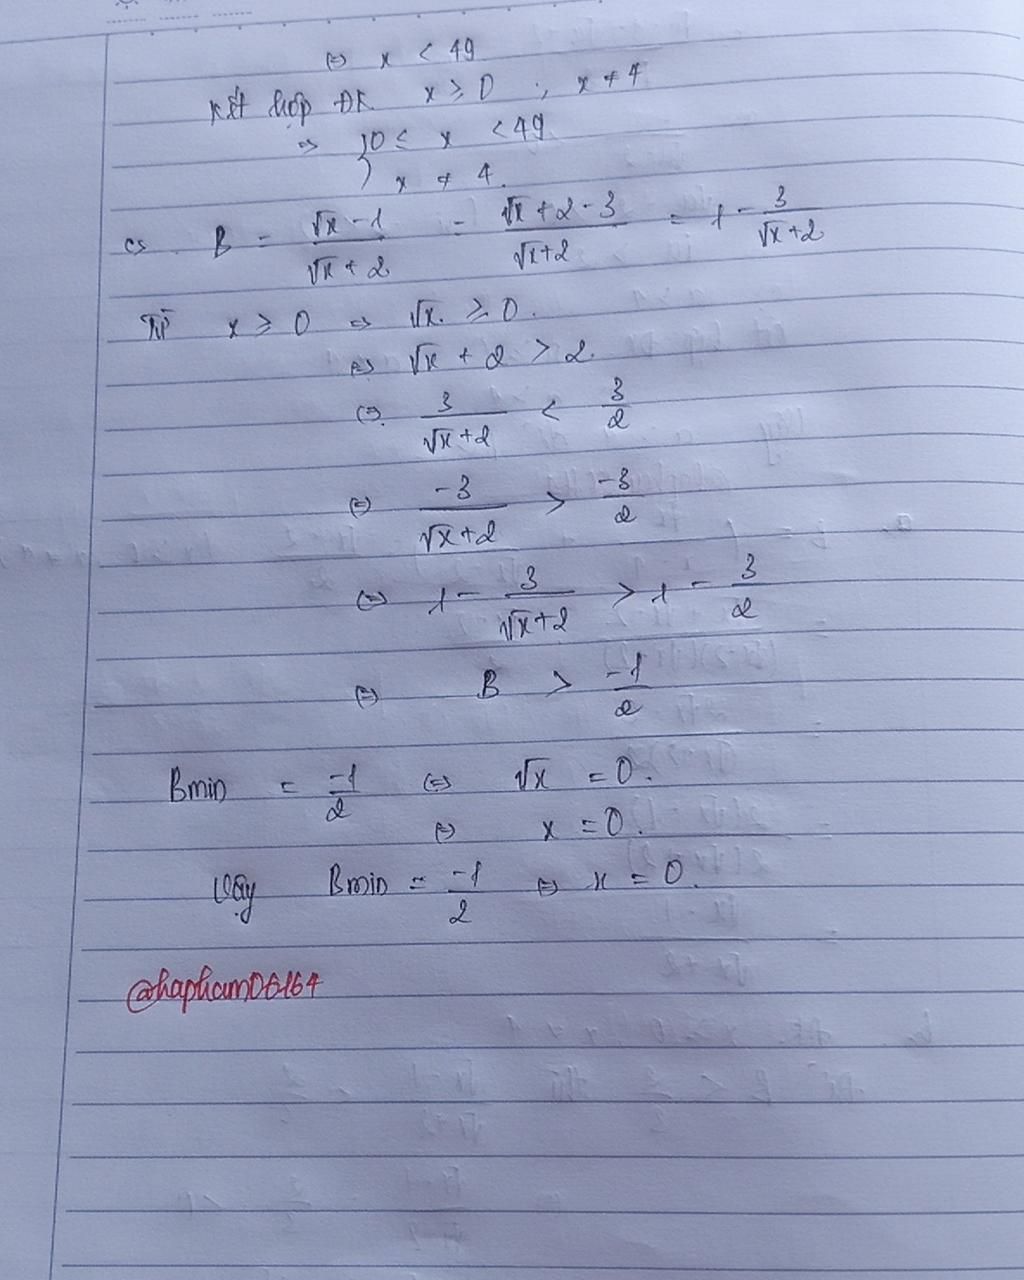 ⇔ x < 49
Kết hợp ĐK x ≥ 0 ; x ≠ 4
⇒ { 0 ≤ x < 49
x ≠ 4.
c, B = (√x - 1)/(√x + 2) = (√x + 2 - 3)/(√x+2) = 1 - 3/(√x+2)
Từ x ≥ 0 ⇒ √x ≥ 0.
⇔ √x + 2 > 2.
⇔ 3/(√x+2) < 3/2
⇔ -3/(√x+2) > -3/2
⇔ 1 - 3/(√x+2) > 1 - 3/2
⇔ B > -1/2
Bmin = -1/2 ⇔ √x = 0.
⇔ x = 0.
Vậy Bmin = -1/2 ⇔ x = 0.
@hapham06164